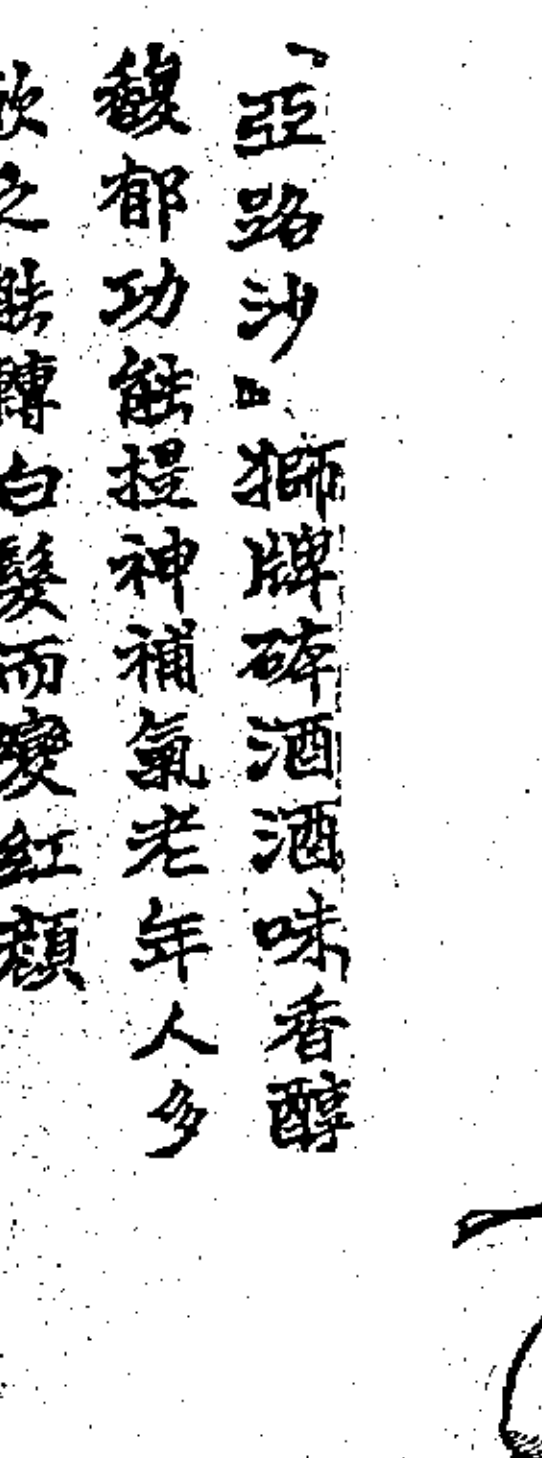 「亞路沙」獅牌砵酒酒味香醇
馥郁功能提神補氣老年人多
飲之能轉白髮而變紅顏